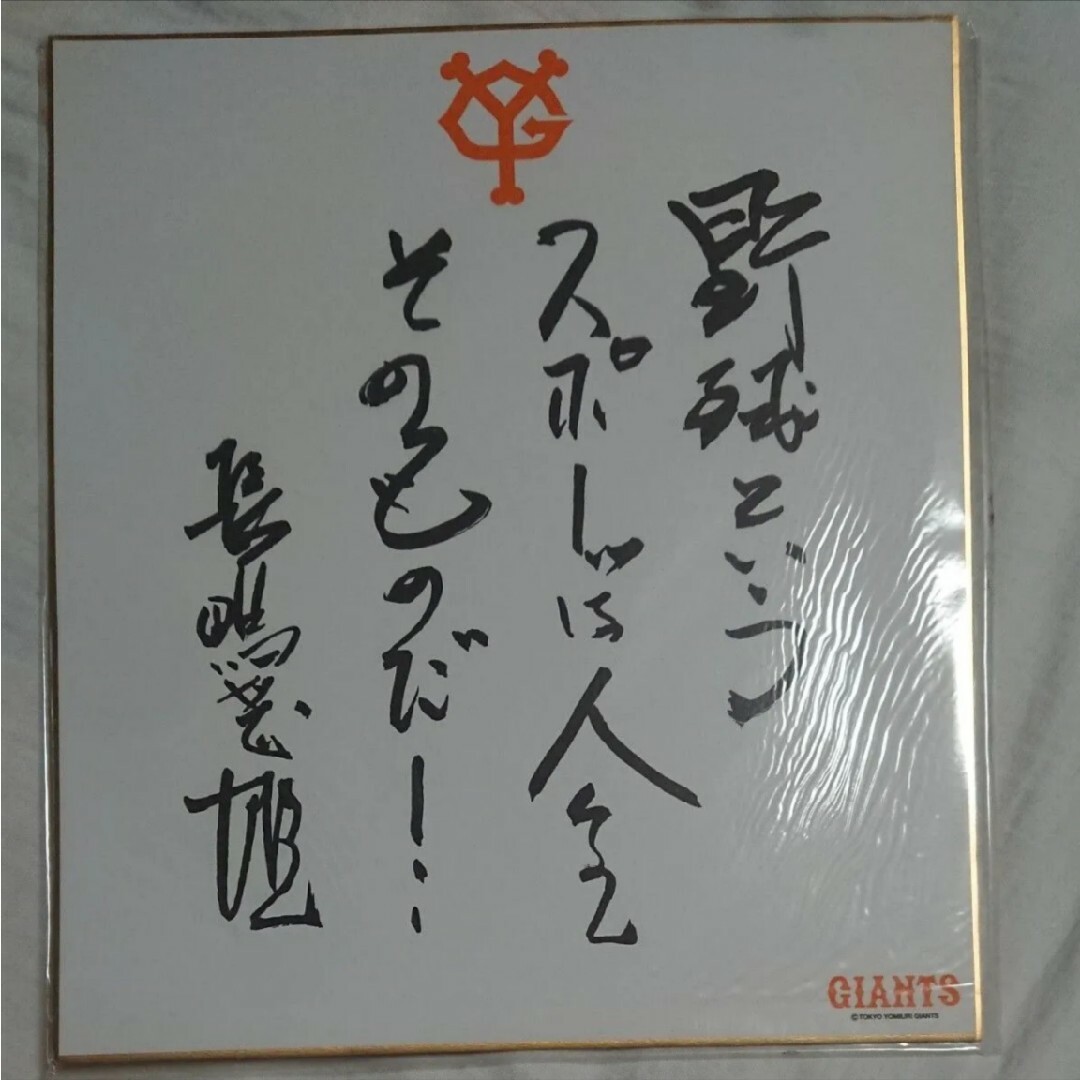 野球という
スポーツは人生
そのものだ!!
長嶋茂雄
YG
GIANTS
©TOKYO YOMIURI GIANTS